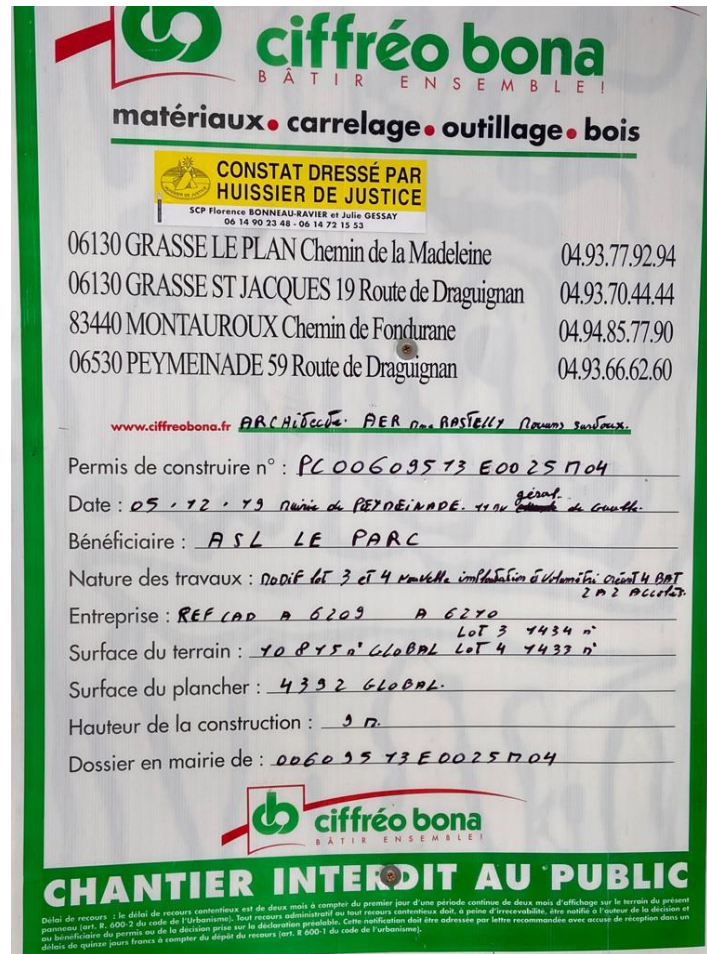 ciffréo bona
BÂTIR ENSEMBLE!
matériaux. carrelage. outillage. bois
CONSTAT DRESSÉ PAR
HUISSIER DE JUSTICE
SCP Florence BONNEAU-RAVIER et Julie GESSAY
06 14 90 23 48 - 06 14 72 15 53
06130 GRASSE LE PLAN Chemin de la Madeleine 04.93.77.92.94
06130 GRASSE ST JACQUES 19 Route de Draguignan 04.93.70.44.44
83440 MONTAUROUX Chemin de Fondurane 04.94.85.77.90
06530 PEYMEINADE 59 Route de Draguignan 04.93.66.62.60
www.ciffreobona.fr ARCHITECTE. AER RASTELLY Mouans Sartoux.
Permis de construire n° : PC 00609513 E0025M04
Date : 05.12.19 Mairie de PEYMEINADE. de Gaulle.
géral.
Bénéficiaire : ASL LE PARC
Nature des travaux : MODIF lot 3 et 4 nouvelle implantation créant 4 BAT
2 A 2 ACCOLÉS.
Entreprise : REF CAD A 6209 A 6210
LOT 3 1434 m²
Surface du terrain : 10815 m² GLOBAL LOT 4 1433 m²
Surface du plancher : 4392 GLOBAL.
Hauteur de la construction : 9 m.
Dossier en mairie de : 00609513E0025M04
ciffréo bona
BÂTIR ENSEMBLE!
CHANTIER INTERDIT AU PUBLIC
Délai de recours : le délai de recours contentieux est de deux mois à compter du premier jour d'une période continue de deux mois d'affichage sur le terrain du présent
panneau (art. R. 600-2 du code de l'Urbanisme). Tout recours administratif ou tout recours contentieux doit, à peine d'irrecevabilité, être notifié à l'auteur de la décision et
au bénéficiaire du permis ou de la décision prise sur la déclaration préalable. Cette notification doit être adressée par lettre recommandée avec accusé de réception dans un
délais de quinze jours francs à compter du dépôt du recours (art. R 600-1 du code de l'urbanisme).